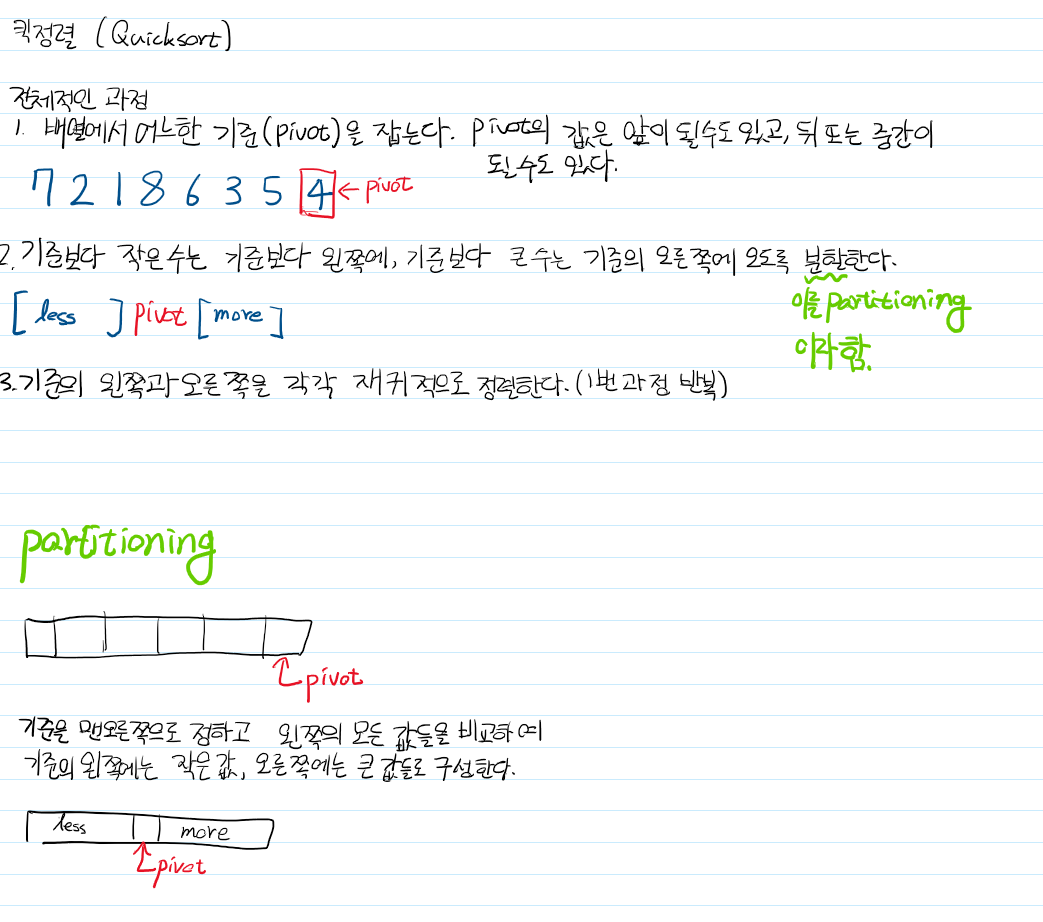 퀵정렬 (Quicksort)
전체적인 과정
1. 배열에서 어느한 기준(pivot)을 잡는다. pivot의 값은 앞이 될수도 있고, 뒤 또는 중간이
될 수도 있다.
7 2 1 8 6 3 5 4 ← pivot
2. 기준보다 작은수는 기준보다 왼쪽에, 기준보다 큰 수는 기준의 오른쪽에 오도록 분할한다.
[ less ] pivot [more ]
이를 partitioning
이라 함.
3. 기준의 왼쪽과 오른쪽을 각각 재귀적으로 정렬한다. (1번 과정 반복)
partitioning
pivot
기준을 맨오른쪽으로 정하고 왼쪽의 모든 값들을 비교하여
기준의 왼쪽에는 작은 값, 오른쪽에는 큰 값들로 구성한다.
less more
pivot